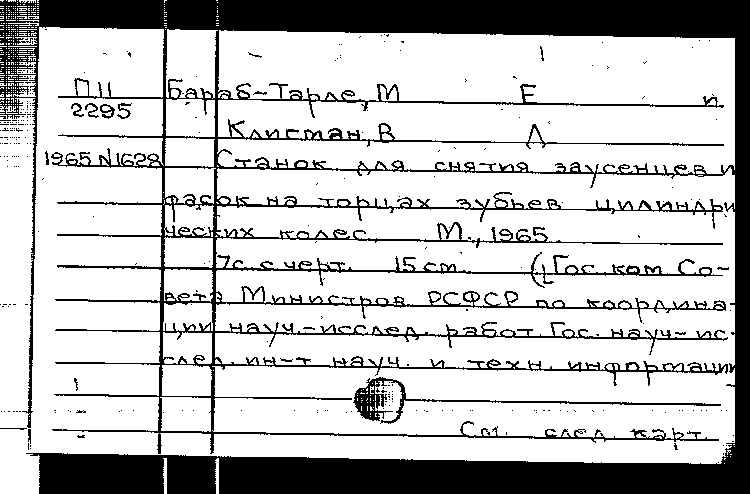 П11 Бараб-Тарле, М Е и
2295
Клисман, В Л
1965 N1628 Станок для снятия заусенцев и
фасок на торцах зубьев цилиндри
ческих колес. М., 1965.
7с. с черт. 15 см. (Гос. ком Со-
вета Министров РСФСР по координа-
ции науч.-исслед. работ. Гос. науч-ис-
след. ин-т науч. и техн. информации
См. след. карт.